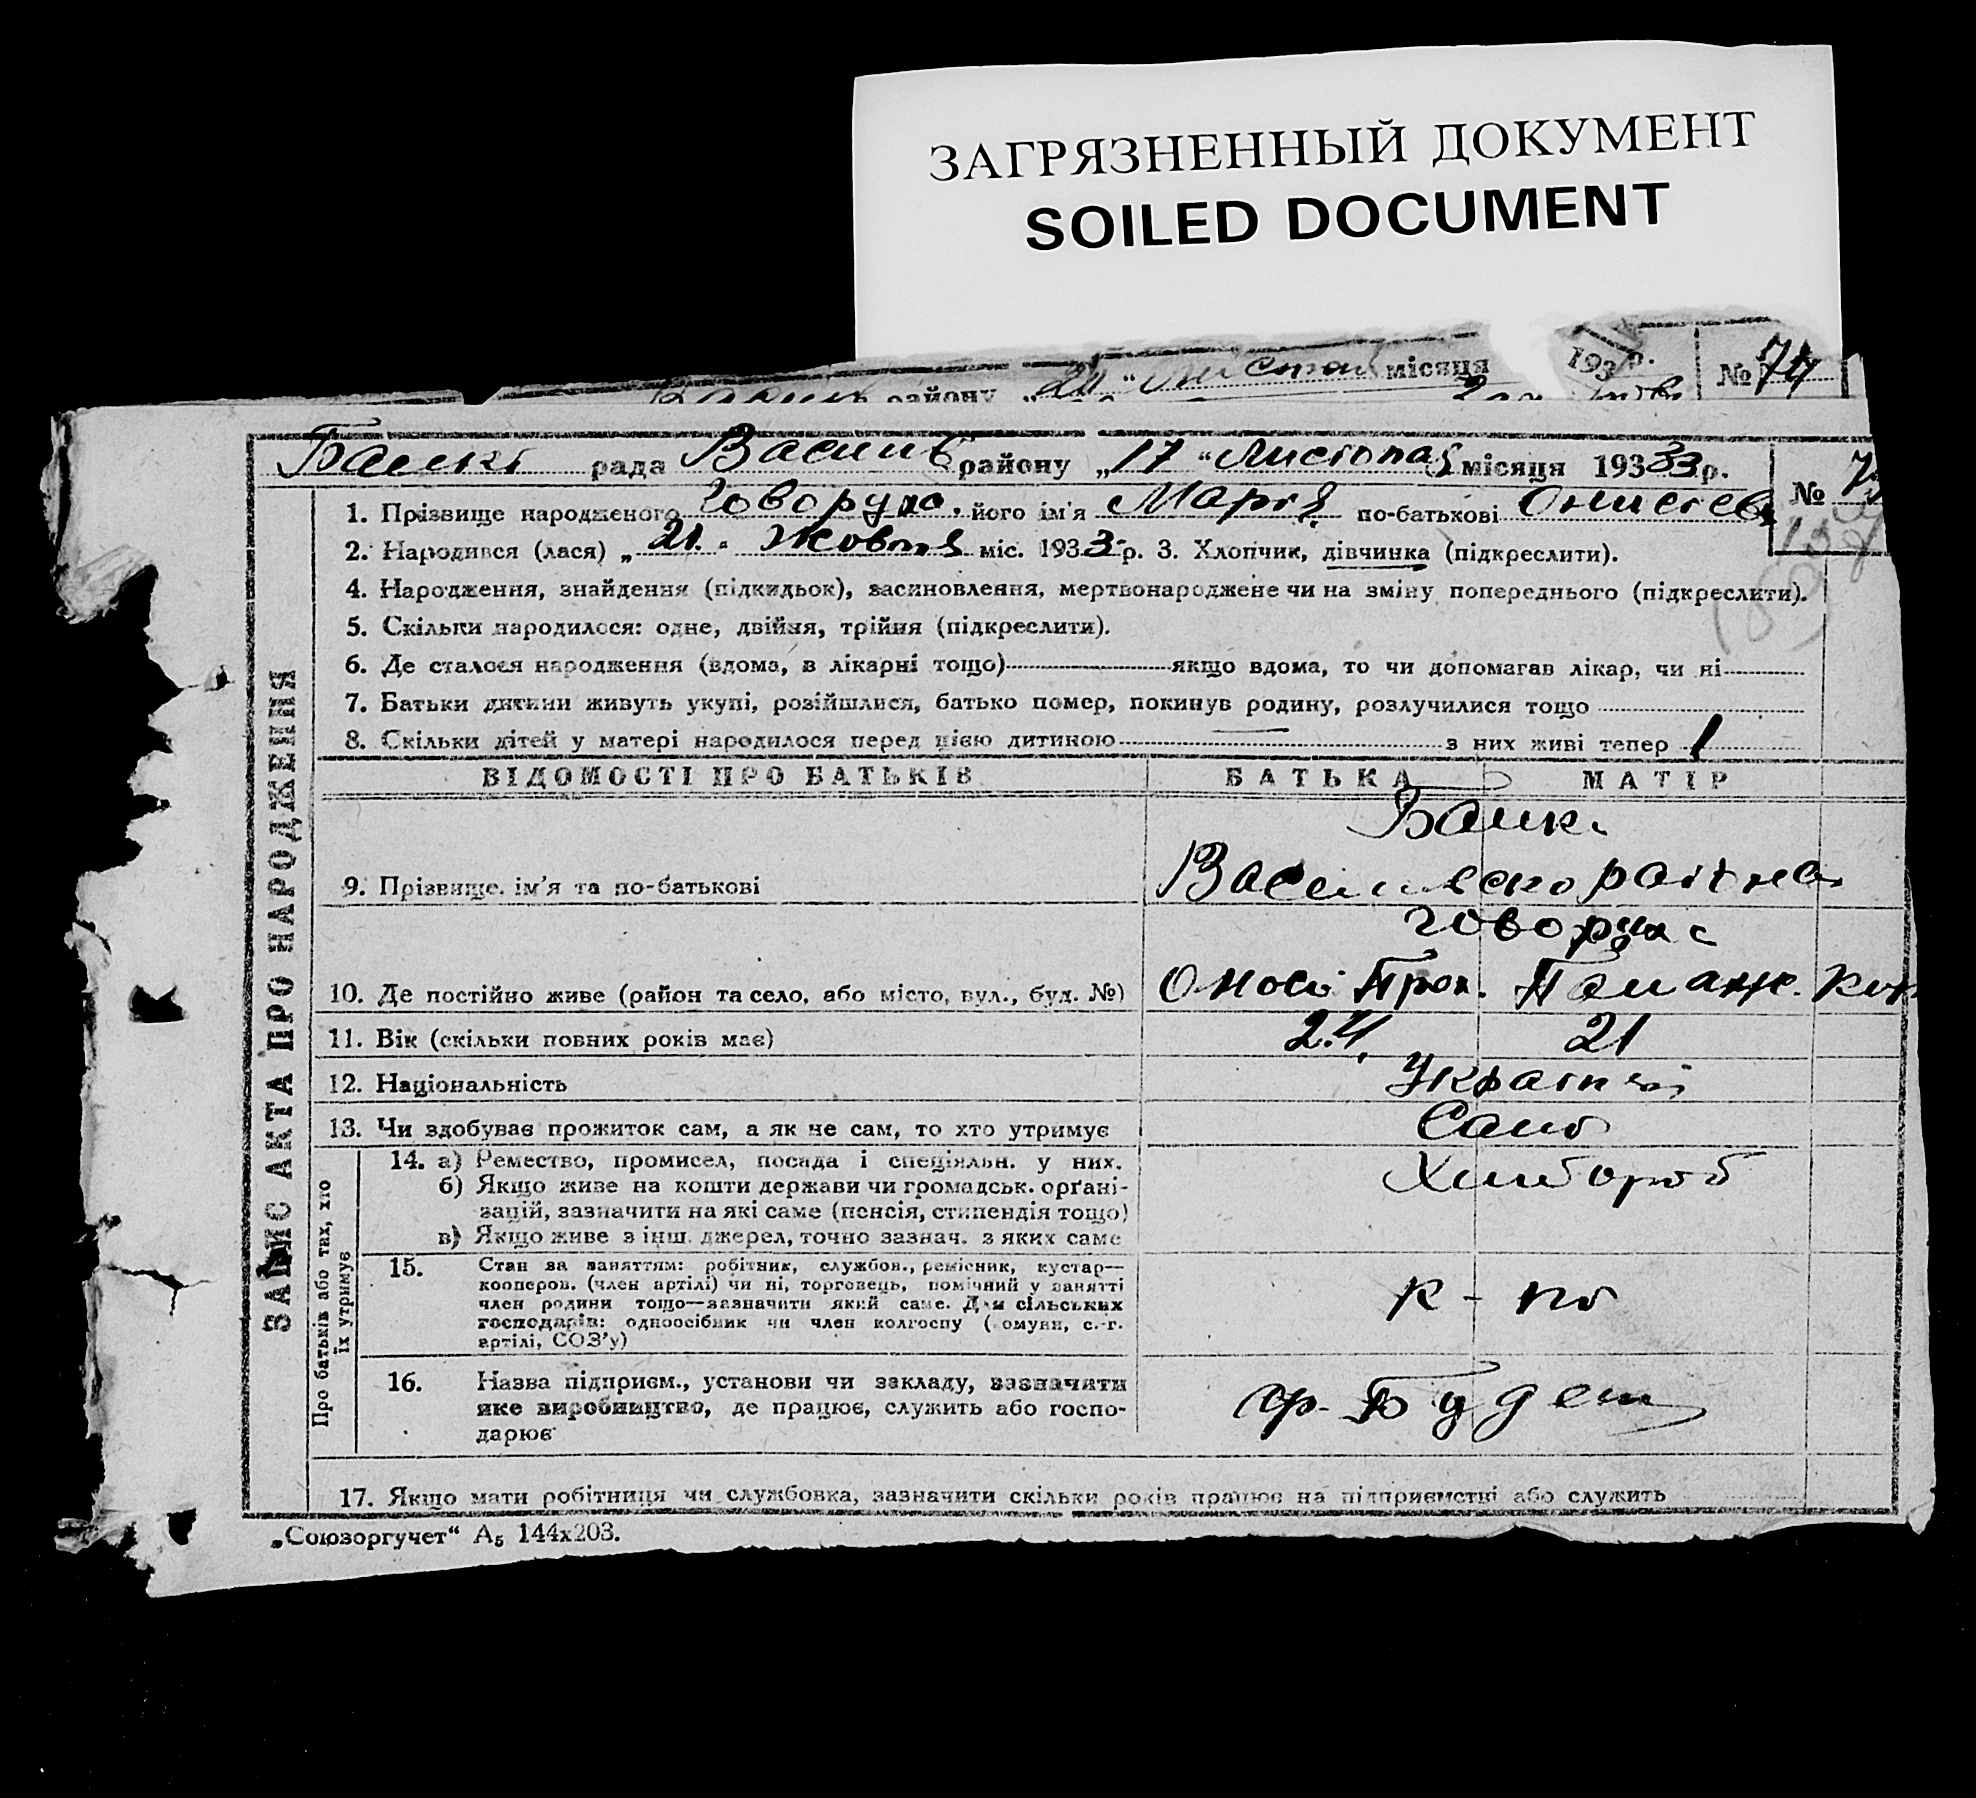 ЗАГРЯЗНЕННЫЙ ДОКУМЕНТ
SOILED DOCUMENT
району „ 20 “ місяця 193 р. № 74
рада Васил району „17“ Листопад місяця 19333 р. №
1. Прізвище народженого Говоруха, його ім'я Марія по-батькові Онисієв
2. Народився (лася) „ 21. “ Жовтня міс. 1933 р. 3. Хлопчик, дівчинка (підкреслити).
4. Народження, знайдення (підкидьок), засиновлення, мертвонароджене чи на зміну попереднього (підкреслити).
5. Скільки народилося: одне, двійня, трійня (підкреслити).
6. Де сталося народження (вдома, в лікарні тощо) якщо вдома, то чи допомагав лікар, чи ні
7. Батьки дитини живуть укупі, розійшлися, батько помер, покинув родину, розлучилися тощо
8. Скільки дітей у матері народилося перед цією дитиною — з них живі тепер 1
ВІДОМОСТІ ПРО БАТЬКІВ БАТЬКА МАТІР
9. Прізвище, ім'я та по-батькові
10. Де постійно живе (район та село, або місто, вул., буд. №)
11. Вік (скільки повних років має) 24. 21
12. Національність
13. Чи здобуває прожиток сам, а як не сам, то хто утримує Самі
14. а) Ремество, промисел, посада і спеціяльн. у них. Хлібороб
б) Якщо живе на кошти держави чи громадськ. орґані-
зацій, зазначити на які саме (пенсія, стипендія тощо)
в) Якщо живе з інш. джерел, точно зазнач. з яких саме
15. Стан за заняттям: робітник, службов., ремісник, кустар—
кооперов. (член артілі) чи ні, торговець, помічний у занятті
член родини тощо—зазначити який саме. Для сільських
господарів: одноосібник чи член колгоспу (комуни, с.-г.
артілі, СОЗ'у)
16. Назва підприєм., установи чи закладу, зазначити
яке виробництво, де працює, служить або госпо-
дарює
17. Якщо мати робітниця чи службовка, зазначити скільки років працює на підприємстві або служить
„Союзоргучет“ А5 144х203.
ЗАПИС АКТА ПРО НАРОДЖЕННЯ
Про батьків або тих, хто
їх утримує